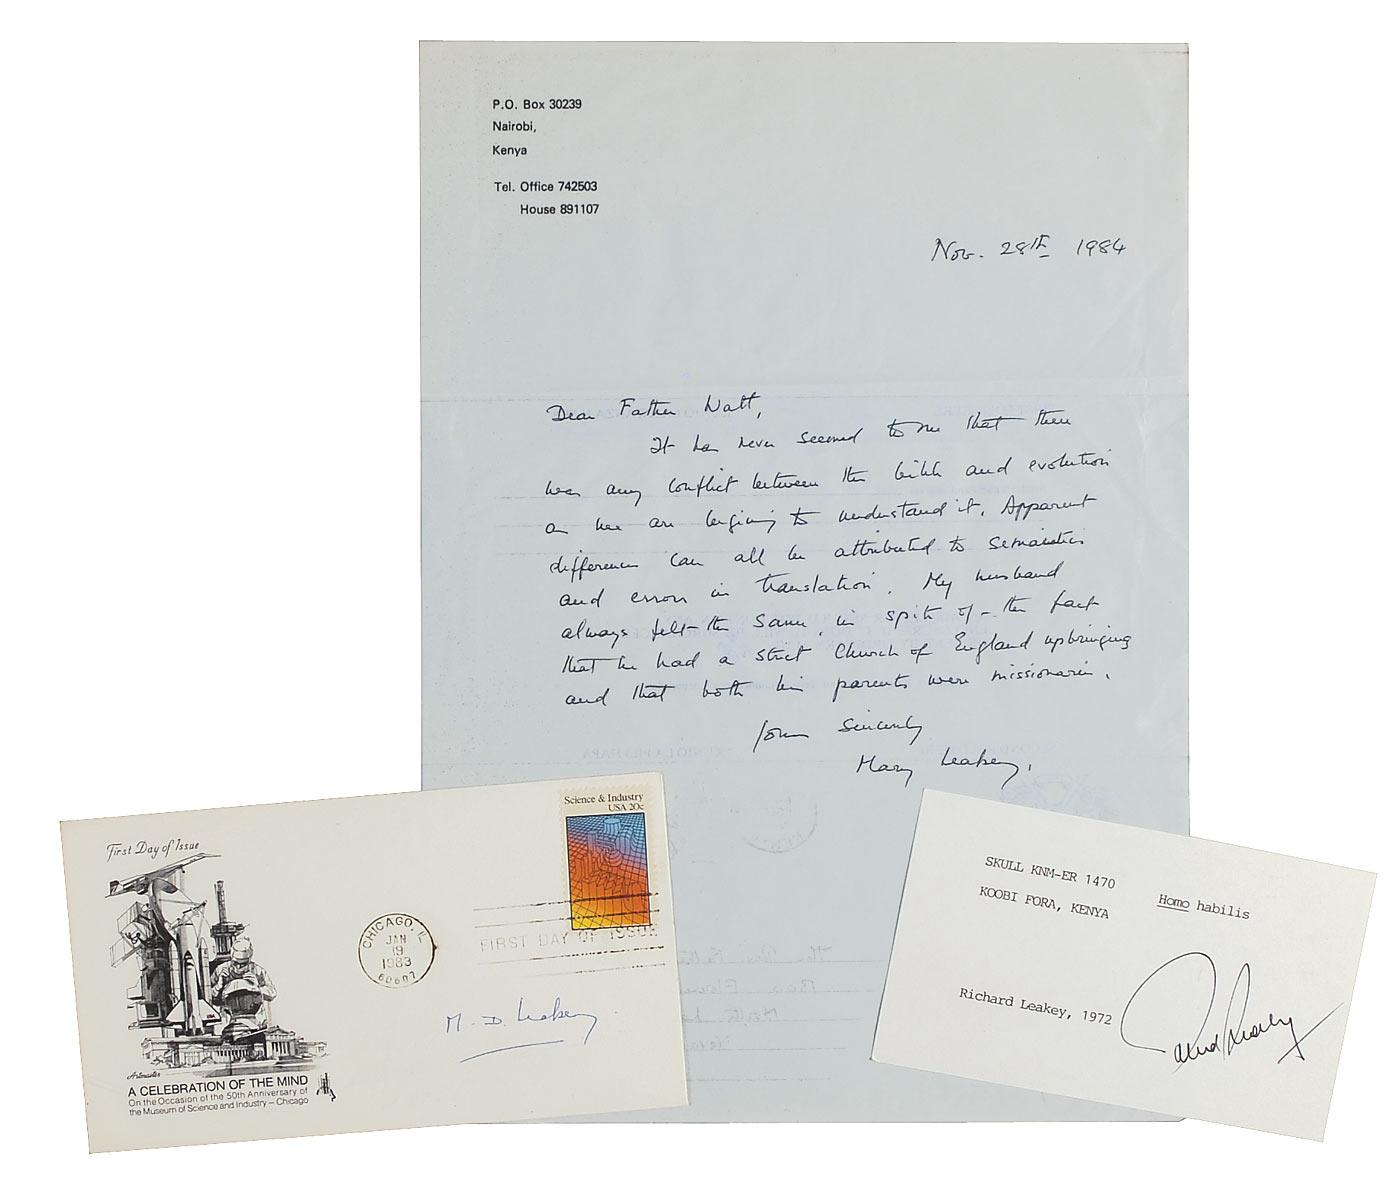 P.O. Box 30239
Nairobi,
Kenya
Tel. Office 742503
House 891107
Nov. 28th 1984
Dear Father Watt,
It has never seemed to me that there
was any conflict between the bible and evolution
as we are begining to understand it. Apparent
differences can all be attributed to semantics
and errors in translation. My husband
always felt the same, in spite of the fact
that he had a strict Church of England upbringing
and that both his parents were missionaries.
Yours sincerely
Mary Leakey.
First Day of Issue
Artmaster
A CELEBRATION OF THE MIND
On the Occasion of the 50th Anniversary of
the Museum of Science and Industry – Chicago
CHICAGO, IL
JAN
19
1983
60607
FIRST DAY OF ISSUE
Science & Industry
USA 20c
M. D. Leakey.
SKULL KNM-ER 1470
KOOBI FORA, KENYA
Homo habilis
Richard Leakey, 1972
Richard Leakey